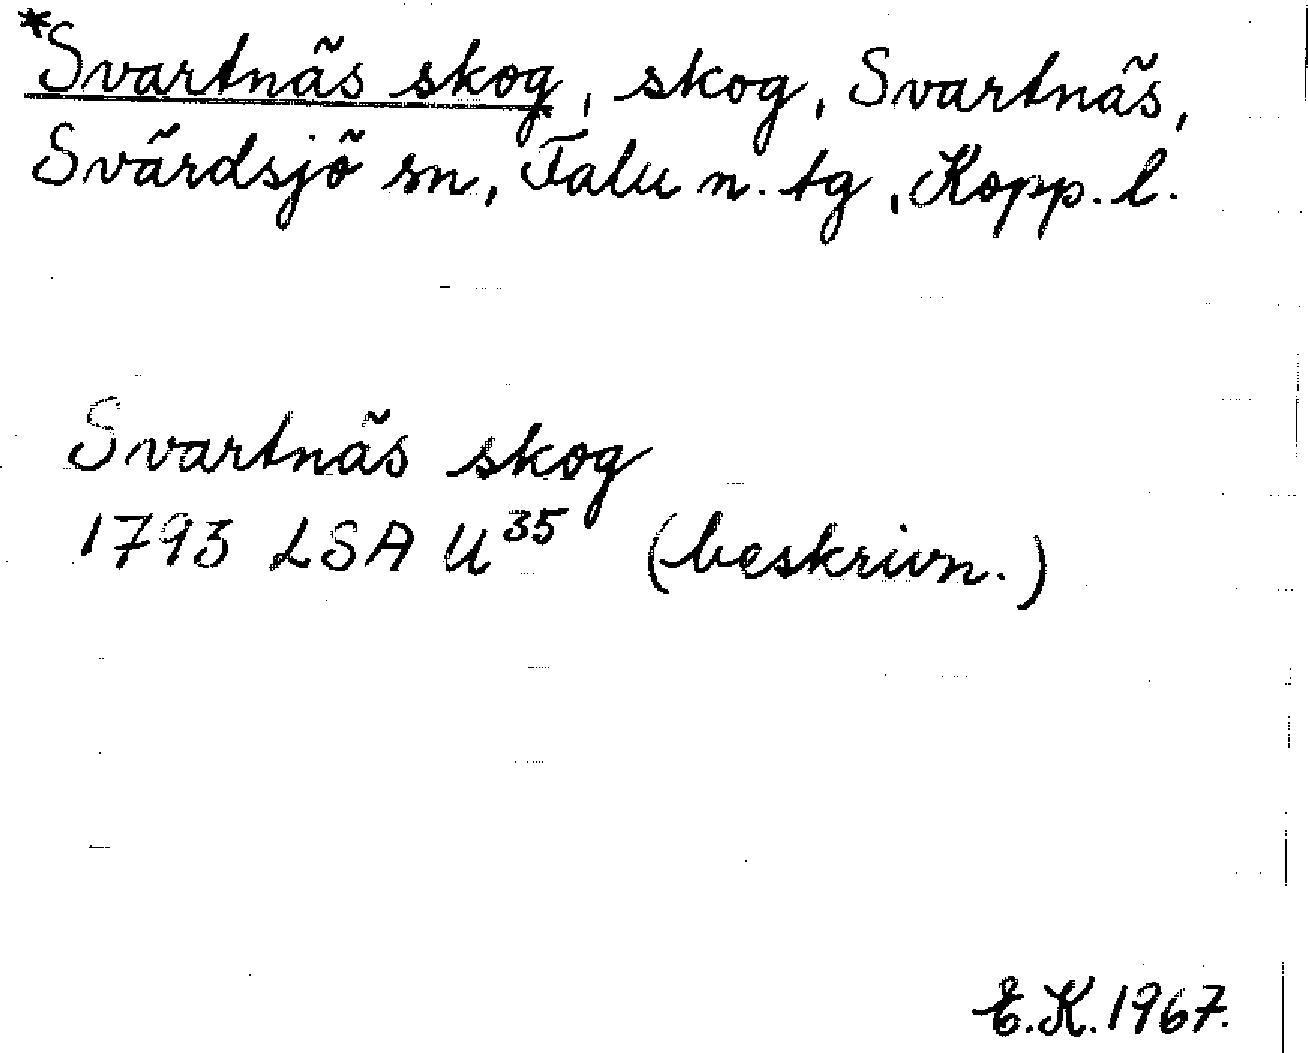 *Svartnäs skog, skog, Svartnäs,
Svärdsjö sn, Falu n. tg, Kopp. l.
Svartnäs skog
1793 LSA U³⁵ (beskrivn.)
E.K. 1967.